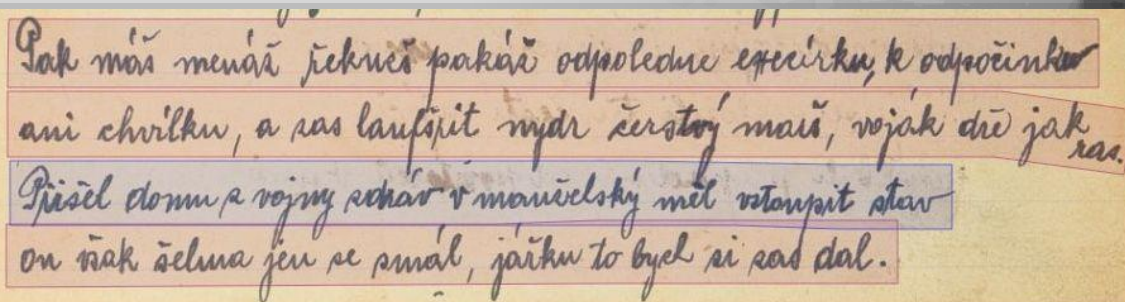 Pak máš menáž řekneš pakáž odpoledne execírku, k odpočinku
ani chvilku, a zas laufšrit nydr čerstvý marš, voják dře jak ras.
Přišel domu z vojny zdráv v manželský měl vstoupit stav
on však šelma jen se smál, jářku to bych si zas dal.